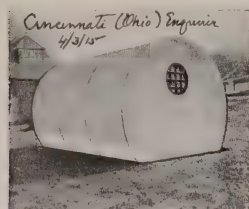 Cincinnati (Ohio) Enquirer
4/3/15